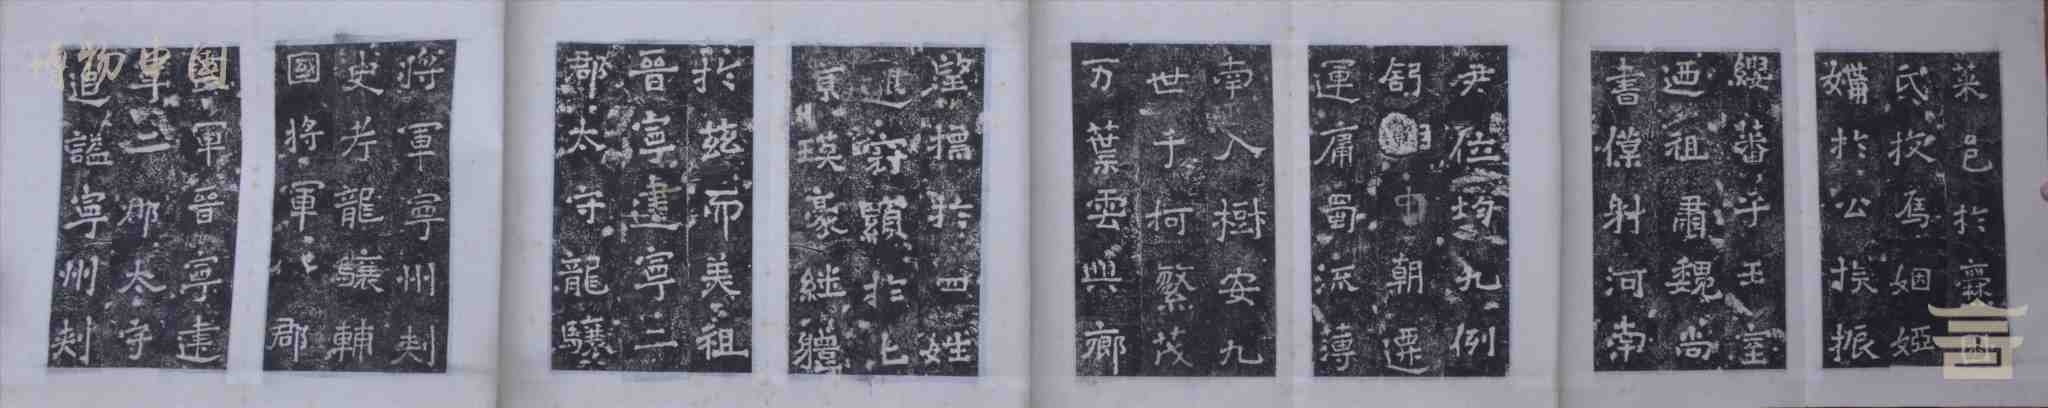 采邑於爨因
氏族焉姻婭
媾於公族振
纓蕃乎王室
迺祖肅魏尚
書僕射河南
尹位均九例
舒翮中朝遷
運庸蜀流薄
南入樹安九
世千柯繁茂
万葉雲興鄉
望摽於四姓
邈冠顯於上
京瑛豪繼體
於茲而美祖
晉寧建寧二
郡太守龍驤
將軍寧州刾
史考龍驤輔
國將軍八郡
監軍晉寧建
寧二郡太守
追諡寧州刾